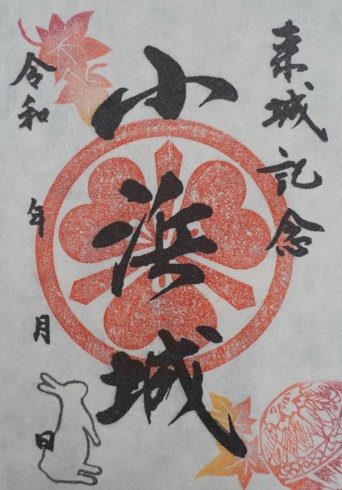 来城記念
小浜城
令和 年 月 日